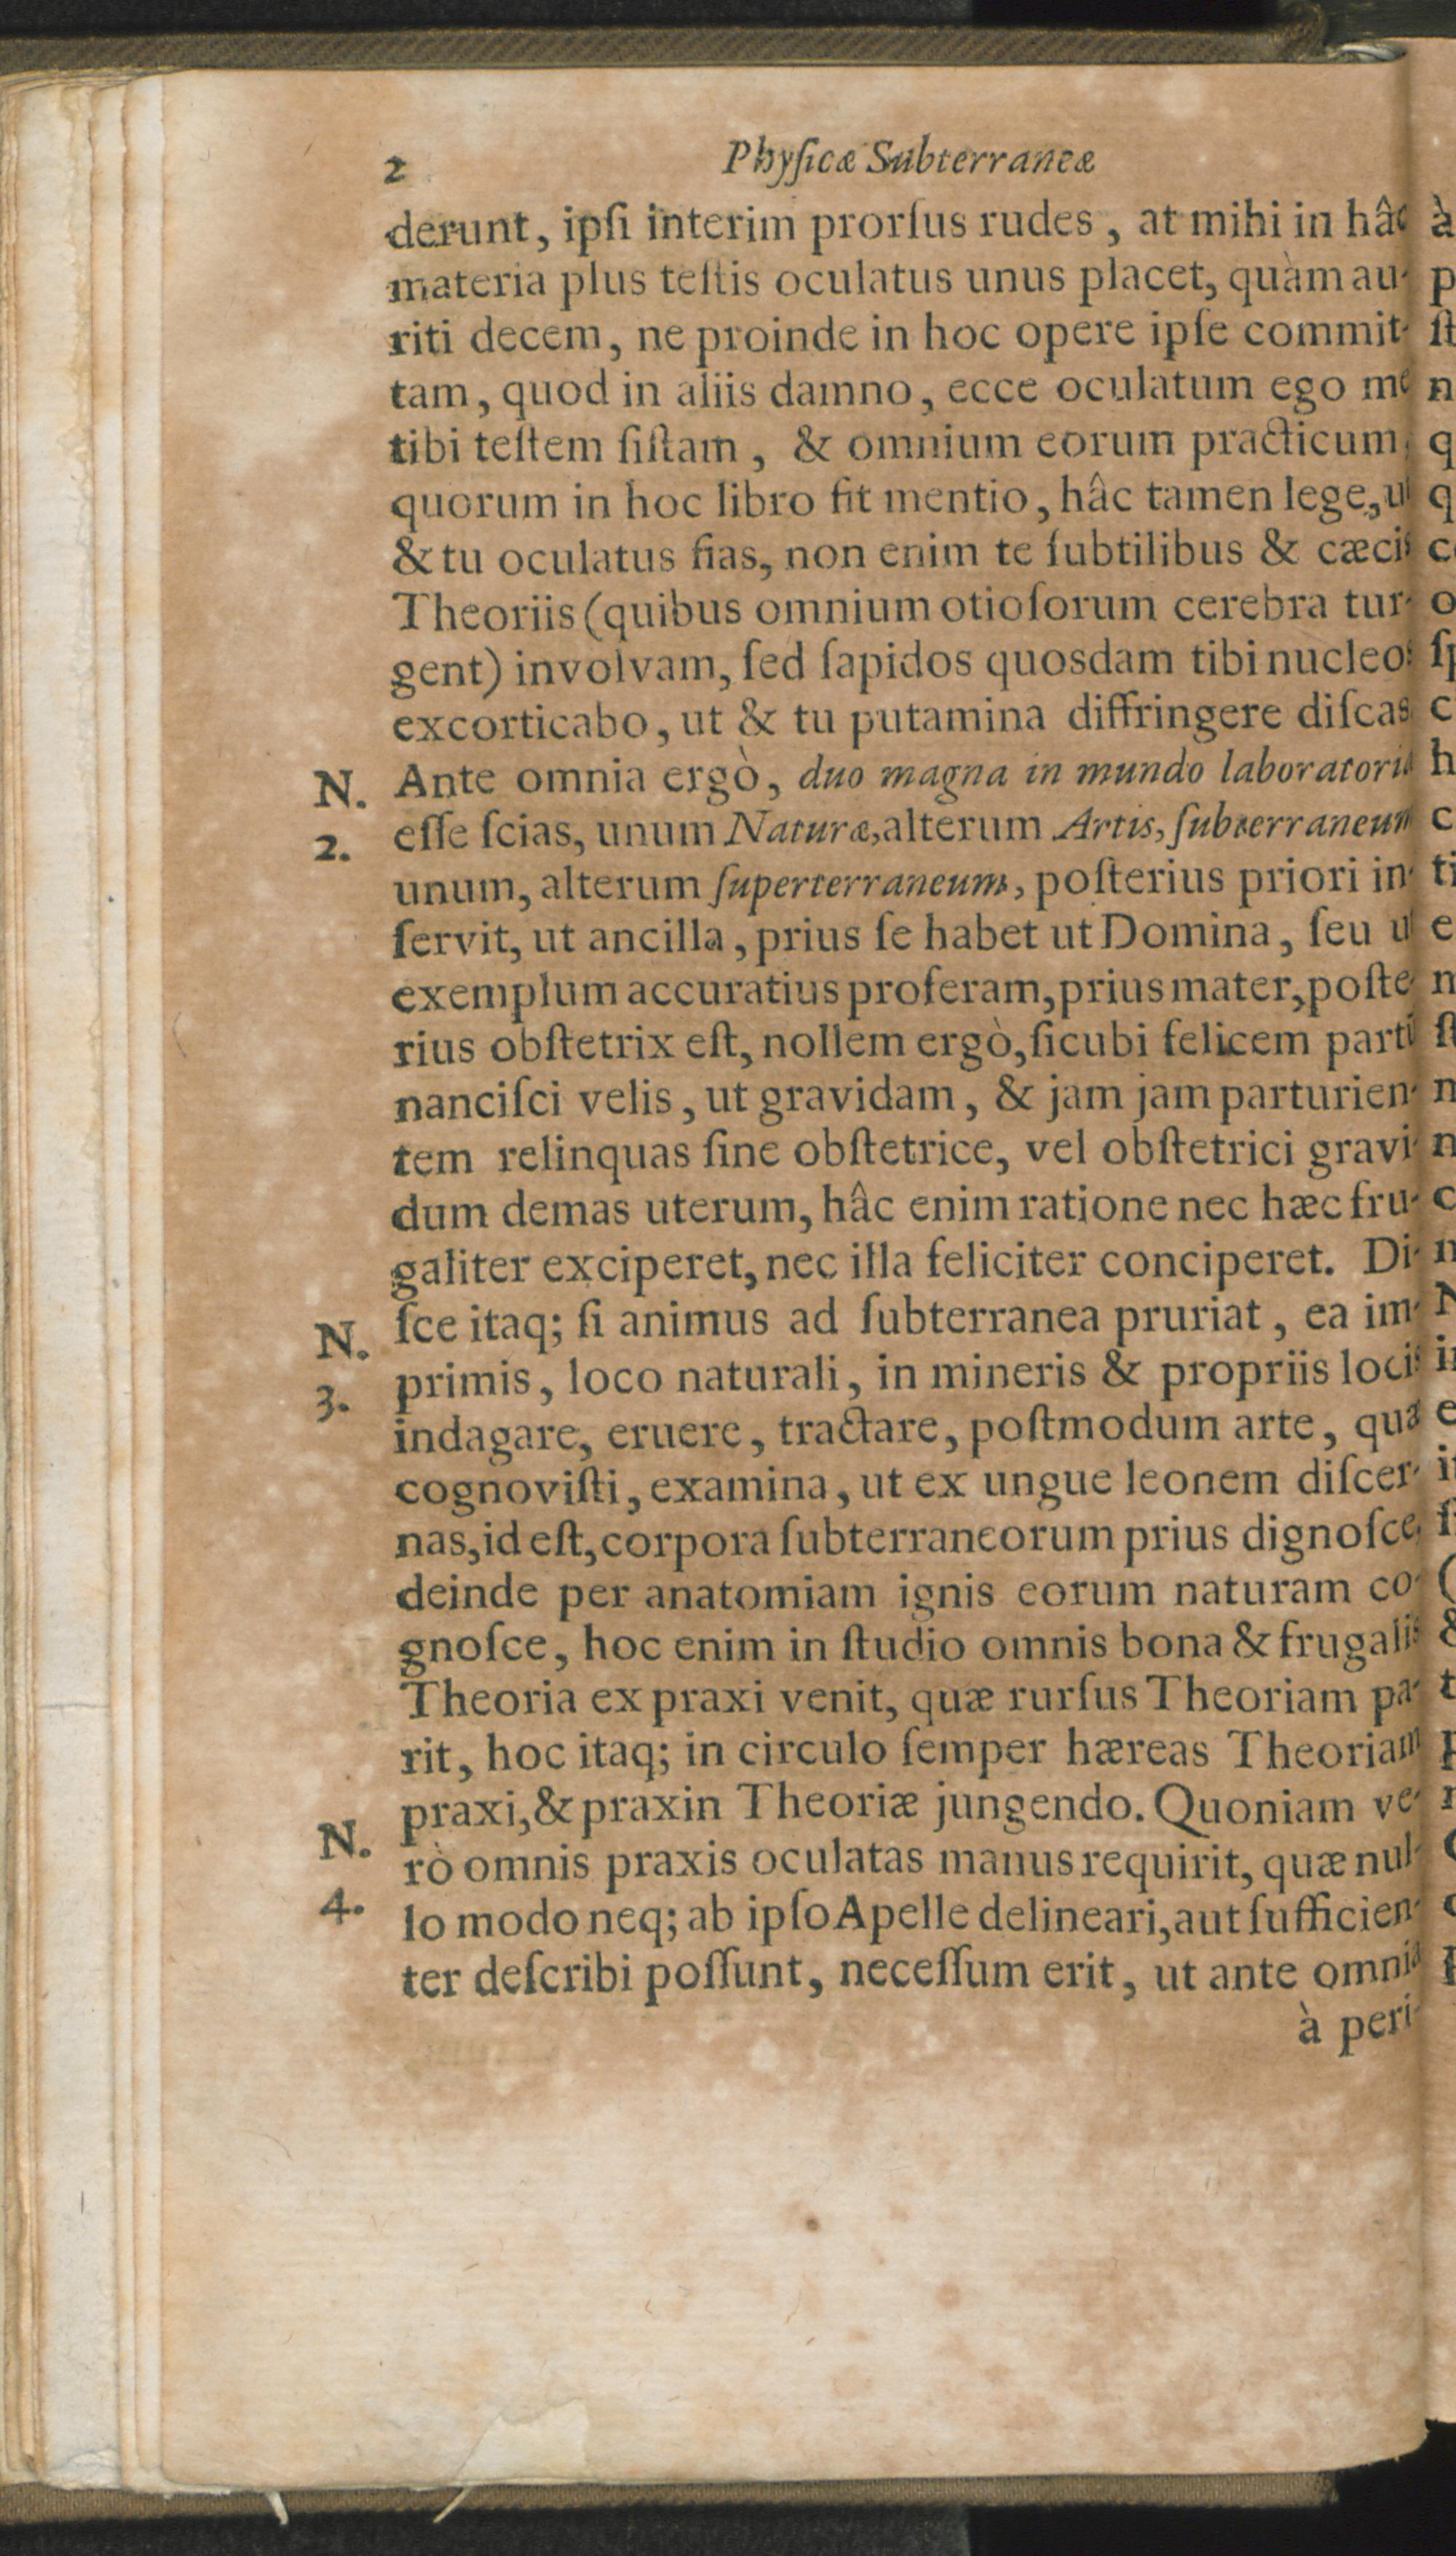 2 Phyſicæ Subterraneæ
derunt, ipſi interim prorſus rudes, at mihi in hâc
materia plus teſtis oculatus unus placet, quàm au-
riti decem, ne proinde in hoc opere ipſe commit-
tam, quod in aliis damno, ecce oculatum ego me
tibi teſtem ſiſtam, & omnium eorum practicum,
quorum in hoc libro fit mentio, hâc tamen lege, ut
& tu oculatus fias, non enim te ſubtilibus & cæcis
Theoriis (quibus omnium otioſorum cerebra tur-
gent) involvam, ſed ſapidos quosdam tibi nucleos
excorticabo, ut & tu putamina diffringere diſcas
N. Ante omnia ergò, duo magna in mundo laboratoria
2. eſſe ſcias, unum Naturæ, alterum Artis, ſubterraneum
unum, alterum ſuperterraneum, poſterius priori in-
ſervit, ut ancilla, prius ſe habet ut Domina, ſeu ut
exemplum accuratius proferam, prius mater, poſte-
rius obſtetrix eſt, nollem ergò, ſicubi felicem parti
nanciſci velis, ut gravidam, & jam jam parturien-
tem relinquas ſine obſtetrice, vel obſtetrici gravi-
dum demas uterum, hâc enim ratione nec hæc fru-
galiter exciperet, nec illa feliciter conciperet. Di-
N. ſce itaq; ſi animus ad ſubterranea pruriat, ea im-
3. primis, loco naturali, in mineris & propriis locis
indagare, eruere, tractare, poſtmodum arte, quæ
cognoviſti, examina, ut ex ungue leonem diſcer-
nas, id eſt, corpora ſubterraneorum prius dignoſce,
deinde per anatomiam ignis eorum naturam co-
gnoſce, hoc enim in ſtudio omnis bona & frugalis
Theoria ex praxi venit, quæ rurſus Theoriam pa-
rit, hoc itaq; in circulo ſemper hæreas Theoriam
praxi, & praxin Theoriæ jungendo. Quoniam ve-
N. rò omnis praxis oculatas manus requirit, quæ nul-
4. lo modo neq; ab ipſo Apelle delineari, aut ſufficien-
ter deſcribi poſſunt, neceſſum erit, ut ante omnia
à peri-